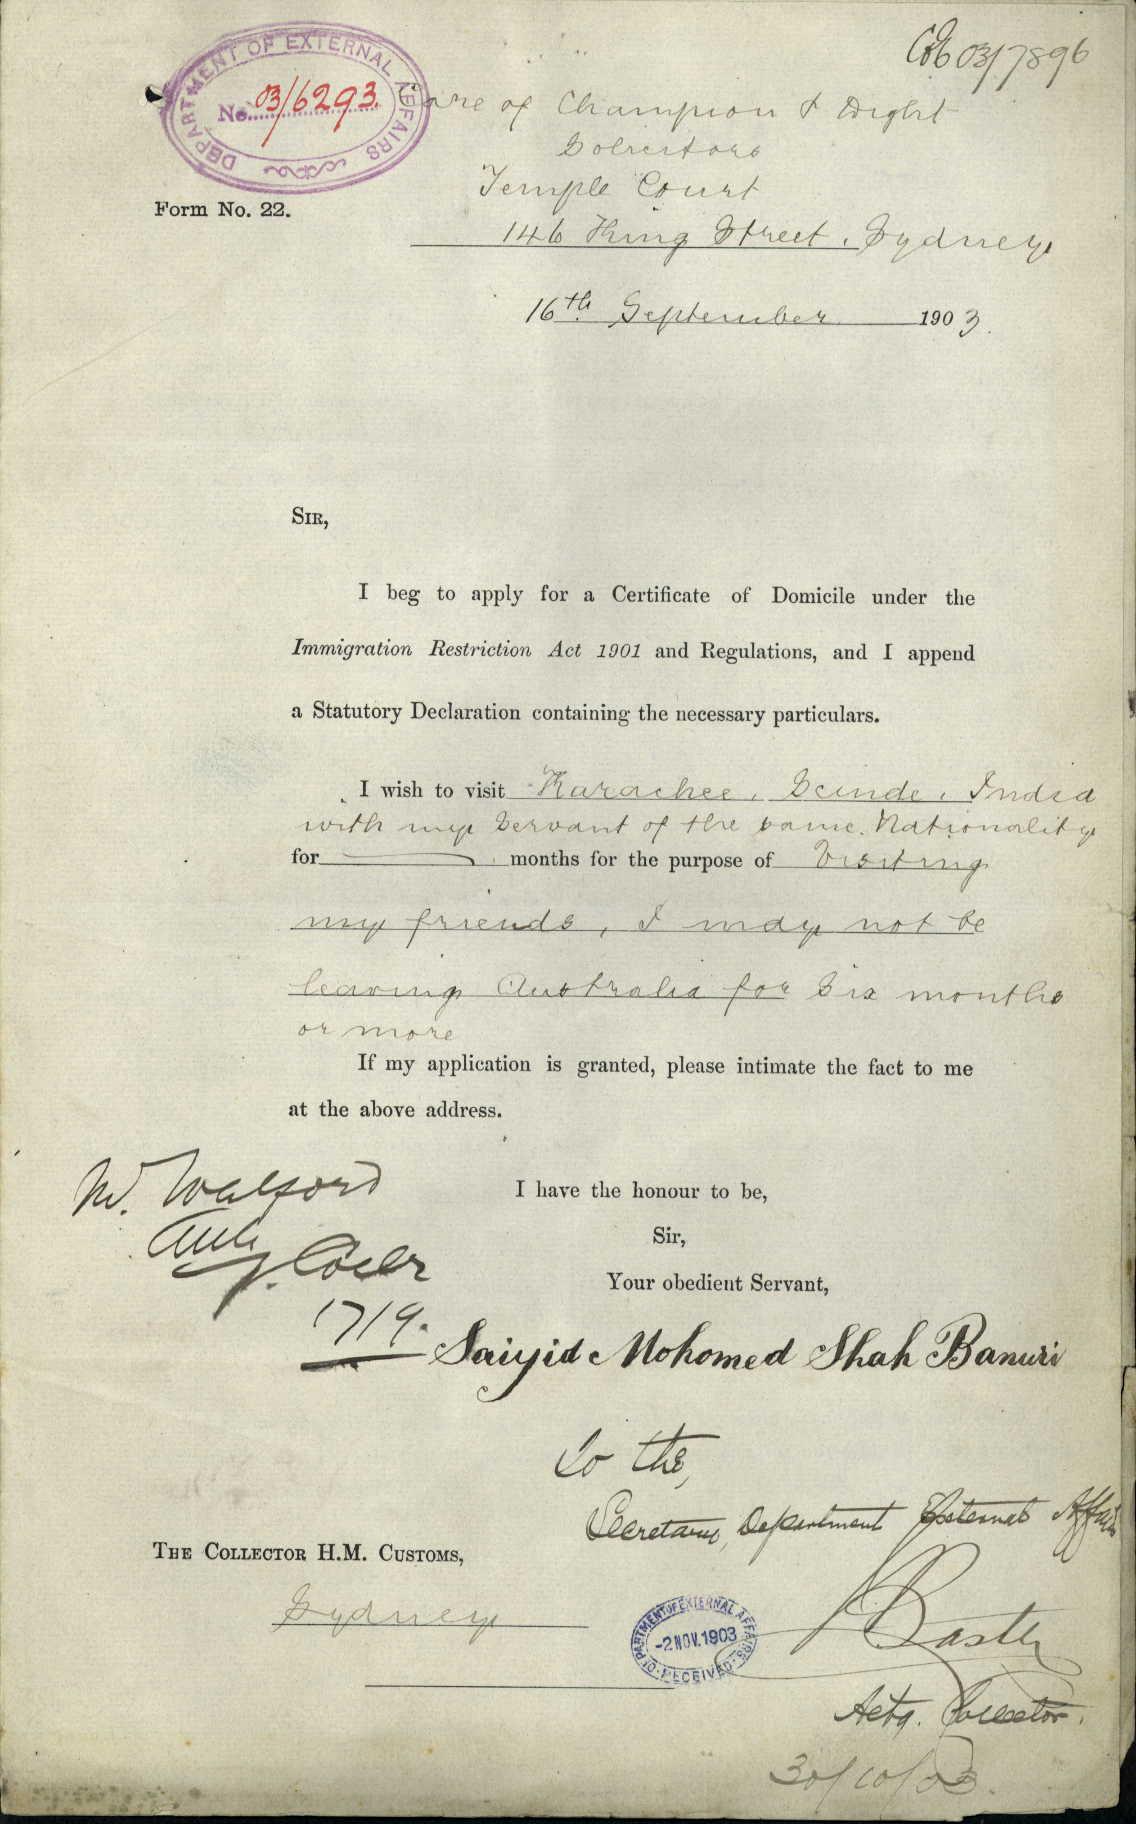 03/7896
DEPARTMENT OF EXTERNAL AFFAIRS
No. 03/6293.
Care of Champion & Dight
Solicitors
Temple Court
Form No. 22.
146 King Street, Sydney
16th September 1903.
SIR,
I beg to apply for a Certificate of Domicile under the
Immigration Restriction Act 1901 and Regulations, and I append
a Statutory Declaration containing the necessary particulars.
I wish to visit Karachee, Scinde, India
with my Servant of the same Nationality
for months for the purpose of Visiting
my friends, I may not be
leaving Australia for Six months
or more
If my application is granted, please intimate the fact to me
at the above address.
I have the honour to be,
Sir,
Your obedient Servant,
W. Walford
17/9.
Saiyid Mohomed Shah Banuri
To the,
Secretary, Department External Affairs
THE COLLECTOR H.M. CUSTOMS,
Sydney
DEPARTMENT OF EXTERNAL AFFAIRS
-2 NOV. 1903
RECEIVED
Baxter
Actg. Collector.
30/10/03.